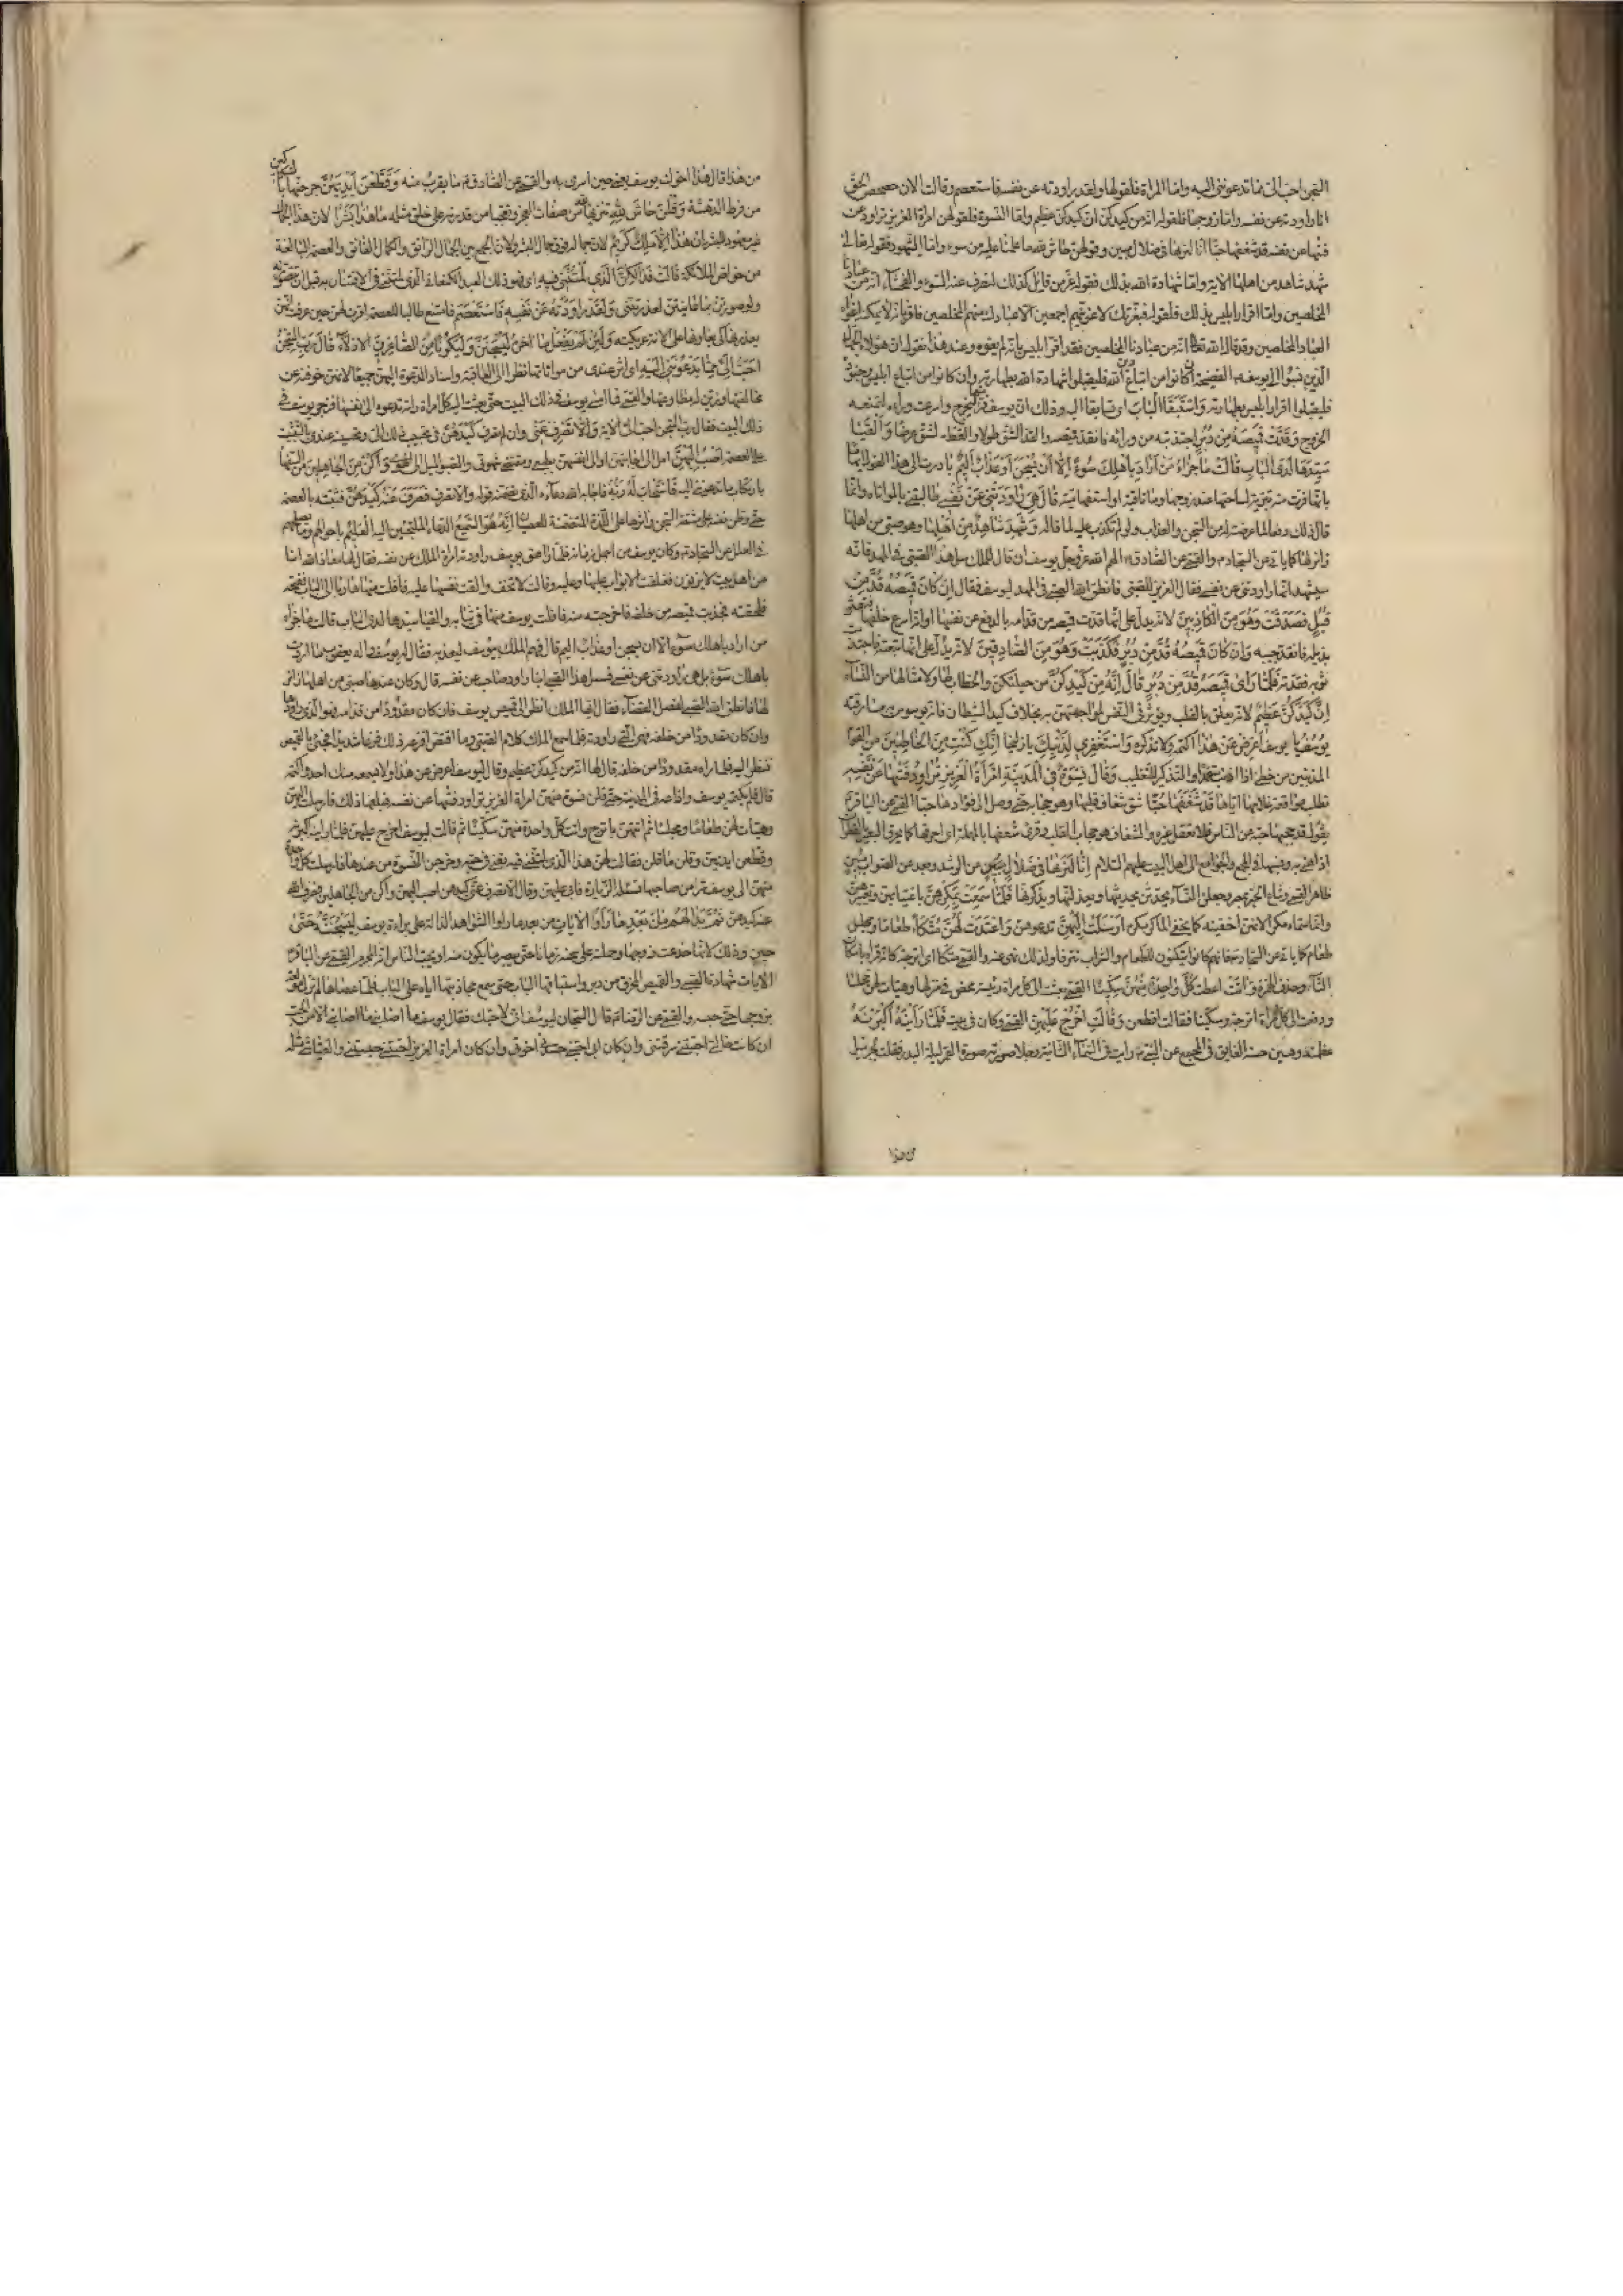 السجن احب الى مما تدعوننى اليه واما المراة فلقولها ولقد راودته عن نفسه فاستعصم وقالت الان حصحص الحق
انا راودته عن نفسه واما زوجها فلقوله انه من كيدكن ان كيدكن عظيم واما النسوة فلقولهن امراة العزيز تراود
فتيها عن نفسه قد شغفها حبا انا لنريها فى ضلال مبين وقولهن حاش لله ما علمنا عليه من سوء واما الشهود فقوله تعالى
شهد شاهد من اهلها الاية واما شهادة الله بذلك فقوله عز من قائل كذلك لنصرف عنه السوء والفحشاء انه من عبادنا
المخلصين واما اقرار ابليس بذلك فلقوله فبعزتك لاغوينهم اجمعين الا عبادك منهم المخلصين فاقر بانه لا يمكنه اغواء
العباد المخلصين وقد قال الله تعالى انه من عبادنا المخلصين فقد اقر ابليس بانه لم يغوه وعند هذا نقول ان هؤلاء الجهال
الذين نسبوا الى يوسف الفضيحة ان كانوا من اتباع دين الله فليقبلوا شهادة الله بطهارته وان كانوا من اتباع ابليس وجنوده
فليقبلوا اقرار ابليس بطهارته وَاسْتَبَقَا الْبَابَ اى تسابقا اليه وذلك ان يوسف فر منها ليخرج واسرعت وراءه لتمنعه
الخروج وَقَدَّتْ قَمِيصَهُ مِنْ دُبُرٍ اجتذبته من ورائه فانقد قميصه والقد الشق طولا والقط الشق عرضا وَاَلْفَيَا
سَيِّدَهَا لَدَى الْبَابِ قَالَتْ مَا جَزَاءُ مَنْ اَرَادَ بِاَهْلِكَ سُوءًا اِلَّا اَنْ يُسْجَنَ اَوْ عَذَابٌ اَلِيمٌ بادرت الى هذا القول ايهاما
بانها فرت منه تبرئة لساحتها عند زوجها وما نافية او استفهامية قَالَ هِيَ رَاوَدَتْنِى عَنْ نَفْسِى طالبتنى بالمواتاة وانما
قال ذلك دفعا لما عرضته له من السجن والعذاب ولو لم تكذب عليه لما قاله وَشَهِدَ شَاهِدٌ مِنْ اَهْلِهَا وهو صبى من اهلها
زائر لها كما ياتى عن السجاد والقمى عن الصادق الهم الله عز وجل يوسف ان قال للملك سل هذا الصبى فى المهد فانه
سيشهد انها راودتنى عن نفسى فقال العزيز للصبى فانطق الله الصبى فى المهد ليوسف فقال اِنْ كَانَ قَمِيصُهُ قُدَّ مِنْ
قُبُلٍ فَصَدَقَتْ وَهُوَ مِنَ الْكَاذِبِينَ لانه يدل على انها قدت قميصه من قدامه بالدفع عن نفسها او انه اسرع خلفها فتعثر
بذيله فانقد جيبه وَاِنْ كَانَ قَمِيصُهُ قُدَّ مِنْ دُبُرٍ فَكَذَبَتْ وَهُوَ مِنَ الصَّادِقِينَ لانه يدل على انها تبعته فاجتذبت
ثوبه فقدته فَلَمَّا رَاى قَمِيصَهُ قُدَّ مِنْ دُبُرٍ قَالَ اِنَّهُ مِنْ كَيْدِكُنَّ من حيلتكن والخطاب لها ولامثالها من النساء
اِنَّ كَيْدَكُنَّ عَظِيمٌ لانه يعلق بالقلب ويؤثر فى النفس لمواجهتهن به بخلاف كيد الشيطان فانه يوسوس به مسارقة
يُوسُفُ يا يوسف اَعْرِضْ عَنْ هَذَا اكتمه ولا تذكره وَاسْتَغْفِرِى لِذَنْبِكِ يا زليخا اِنَّكِ كُنْتِ مِنَ الْخَاطِئِينَ من القوم
المذنبين من خطئ اذا اذنب متعمدا والتذكير للتغليب وَقَالَ نِسْوَةٌ فِى الْمَدِينَةِ امْرَاَةُ الْعَزِيزِ تُرَاوِدُ فَتَيهَا عَنْ نَفْسِهِ
تطلب مواقعة غلامها اياها قَدْ شَغَفَهَا حُبًّا شق شغاف قلبها وهو حجابه حتى وصل الى فؤادها حبا القمى عن الباقر
يقول قد حجبها حبه عن الناس فلا تعقل غيره والشغاف هو حجاب القلب وقرئ شعفها بالمهملة اى احرقها كما يحرق البعير بالقطران
اذا هنئ به ونسبها فى المجمع والجوامع الى اهل البيت عليهم السلام اِنَّا لَنَرَيهَا فِى ضَلَالٍ مُبِينٍ عن الرشد وبعد عن الصواب
ظاهر القمى وشاع الخبر بمصر وجعلن النساء يتحدثن بحديثها ويعذلنها ويذكرنها فَلَمَّا سَمِعَتْ بِمَكْرِهِنَّ باغتيابهن وتعييرهن
وانما سماه مكرا لانهن اخفينه كما يخفى الماكر مكره اَرْسَلَتْ اِلَيْهِنَّ تدعوهن وَاَعْتَدَتْ لَهُنَّ مُتَّكَأً طعاما ومجلس
طعام كما ياتى عن السجاد فانهم كانوا يتكئون للطعام والشراب تترفا ولذلك نهى عنه والقمى متكا اى اترجة كانه قراه باسكان
التاء وحذف الهمزة وَاٰتَتْ اعطت كُلَّ وَاحِدَةٍ مِنْهُنَّ سِكِّينًا القمى بعثت الى كل امراة رئيسة فجمعتهن فى منزلها وهيات لهن مجلسا
ودفعت الى كل امراة اترجة وسكينا فقالت اقطعن وَقَالَتِ اخْرُجْ عَلَيْهِنَّ القمى وكان فى بيت فَلَمَّا رَاَيْنَهُ اَكْبَرْنَهُ
عظمنه وهبن حسنه الفايق فى المجمع عن النبى رايت فى السماء الثانية رجلا صورته صورة القمر ليلة البدر فقلت لجبرئيل
من هذا
من هذا قال هذا اخوك يوسف يعنى حين اسرى به والقمى عن الصادق ما يقرب منه وَقَطَّعْنَ اَيْدِيَهُنَّ جرحنها بالسكاكين
من فرط الدهشة وَقُلْنَ حَاشَ لِلَّهِ تنزيها له من صفات العجز وتعجبا من قدرته على خلق مثله مَا هَذَا بَشَرًا لان هذا الجمال
غير معهود للبشر اِنْ هَذَا اِلَّا مَلَكٌ كَرِيمٌ لان جماله فوق جمال البشر ولان الجمع بين الجمال الرائق والكمال الفائق والعصمة البالغة
من خواص الملائكة قَالَتْ فَذَلِكُنَّ الَّذِى لُمْتُنَّنِى فِيهِ اى فهو ذلك العبد الكنعانى الذى لمتننى فى الافتتان به قبل ان تتصورنه
ولو تصورتن بما عاينتن لعذرتننى وَلَقَدْ رَاوَدْتُهُ عَنْ نَفْسِهِ فَاسْتَعْصَمَ فامتنع طالبا للعصمة اقرت لهن حين عرفت انهن
يعذرنها كى يعاونها على الانة عريكته وَلَئِنْ لَمْ يَفْعَلْ مَا اٰمُرُهُ لَيُسْجَنَنَّ وَلَيَكُونًا مِنَ الصَّاغِرِينَ الاذلاء قَالَ رَبِّ السِّجْنُ
اَحَبُّ اِلَىَّ مِمَّا يَدْعُونَنِى اِلَيْهِ اى اثر عندى من مواتاتها نظرا الى العاقبة واسناد الدعوة اليهن جميعا لانهن خوفنه عن
مخالفتها وزين له مطاوعتها والقمى فما امسى يوسف فى ذلك البيت حتى بعثت اليه كل امراة راته تدعوه الى نفسها فضجر يوسف فى
ذلك البيت فقال رب السجن احب الى الاية وَاِلَّا تَصْرِفْ عَنِّى وان لم تصرف عنى كَيْدَهُنَّ فى تحبيب ذلك الى وتحسينه عندى بالتثبيت
على العصمة اَصْبُ اِلَيْهِنَّ امل الى اجابتهن او الى انفسهن بطبعى ومقتضى شهوتى والصبو الميل الى الهوى وَاَكُنْ مِنَ الْجَاهِلِينَ من السفهاء
بارتكاب ما يدعوننى اليه فَاسْتَجَابَ لَهُ رَبُّهُ فاجاب الله دعاءه الذى تضمنه قوله والا تصرف فَصَرَفَ عَنْهُ كَيْدَهُنَّ فثبته بالعصمة
حتى وطن نفسه على مشقة السجن واثرها على اللذة المتضمنة للعصيان اِنَّهُ هُوَ السَّمِيعُ لدعاء الملتجئين اليه الْعَلِيمُ باحوالهم وما يصلحهم
فى العلل عن السجاد وكان يوسف من اجمل اهل زمانه فلما راهق يوسف راودته امراة الملك عن نفسه فقال لها معاذ الله انا
من اهل بيت لا يزنون فغلقت الابواب عليها وعليه وقالت لا تخف والقت نفسها عليه فافلت منها هاربا الى الباب ففتحه
فلحقته فجذبت قميصه من خلفه فاخرجته منه فافلت يوسف منها فى ثيابه والفيا سيدها لدى الباب قالت ما جزاء
من اراد باهلك سوءا الا ان يسجن او عذاب اليم قال فهم الملك بيوسف ليعذبه فقال له يوسف واله يعقوب ما اردت
باهلك سوءا بل هى راودتنى عن نفسى فسل هذا الصبى اينا راود صاحبه عن نفسه قال وكان عندها صبى من اهلها زائر
لها فانطق الله الصبى لفصل القضاء فقال ايها الملك انظر الى قميص يوسف فان كان مقدودا من قدامه فهو الذى راودها
وان كان مقدودا من خلفه فهى التى راودته فلما سمع الملك كلام الصبى وما اقتص افزعه ذلك فزعا شديدا فجئ بالقميص
فنظر اليه فلما راه مقدودا من خلفه قال لها انه من كيدكن ان كيدكن عظيم وقال ليوسف اعرض عن هذا ولا يسمعه منك احد واكتمه
قال فلم يكتمه يوسف واذاعه فى المدينة حتى قلن نسوة منهن امراة العزيز تراود فتيها عن نفسه فبلغها ذلك فارسلت اليهن
وهيات لهن طعاما ومجلسا ثم اتتهن باترج واتت كل واحدة منهن سكينا ثم قالت ليوسف اخرج عليهن فلما راينه اكبرنه
وقطعن ايديهن وقلن ما قلن فقالت لهن هذا الذى لمتننى فيه تعنى فى حبه وخرجن النسوة من عندها فارسلت كل واحدة
منهن الى يوسف سرا من صاحبتها تسئله الزيارة فابى عليهن وقال الا تصرف عنى كيدهن اصب اليهن واكن من الجاهلين فصرف الله
عنه كيدهن ثُمَّ بَدَا لَهُمْ مِنْ بَعْدِ مَا رَاَوُا الْاٰيَاتِ من بعد ما راوا الشواهد الدالة على براءة يوسف لَيَسْجُنُنَّهُ حَتَّى
حِينٍ وذلك لانها خدعت زوجها وحملته على سجنه زمانا حتى يبصر ما يكون منه او يحسب الناس انه المجرم القمى عن الباقر
الايات شهادة الصبى والقميص المخرق من دبر واستباقهما الباب حتى سمع مجاذبتها اياه على الباب فلما عصاها لم تزل ملحة
بزوجها حتى حبسه والقمى عن الرضا قال السجان ليوسف انى لاحبك فقال يوسف ما اصابنى ما اصابنى الا من الحب
ان كانت خالتى احبتنى سرقتنى وان كان ابى احبنى حسدنى اخوتى وان كان امراة العزيز احبتنى حبستنى والعياشى مثله